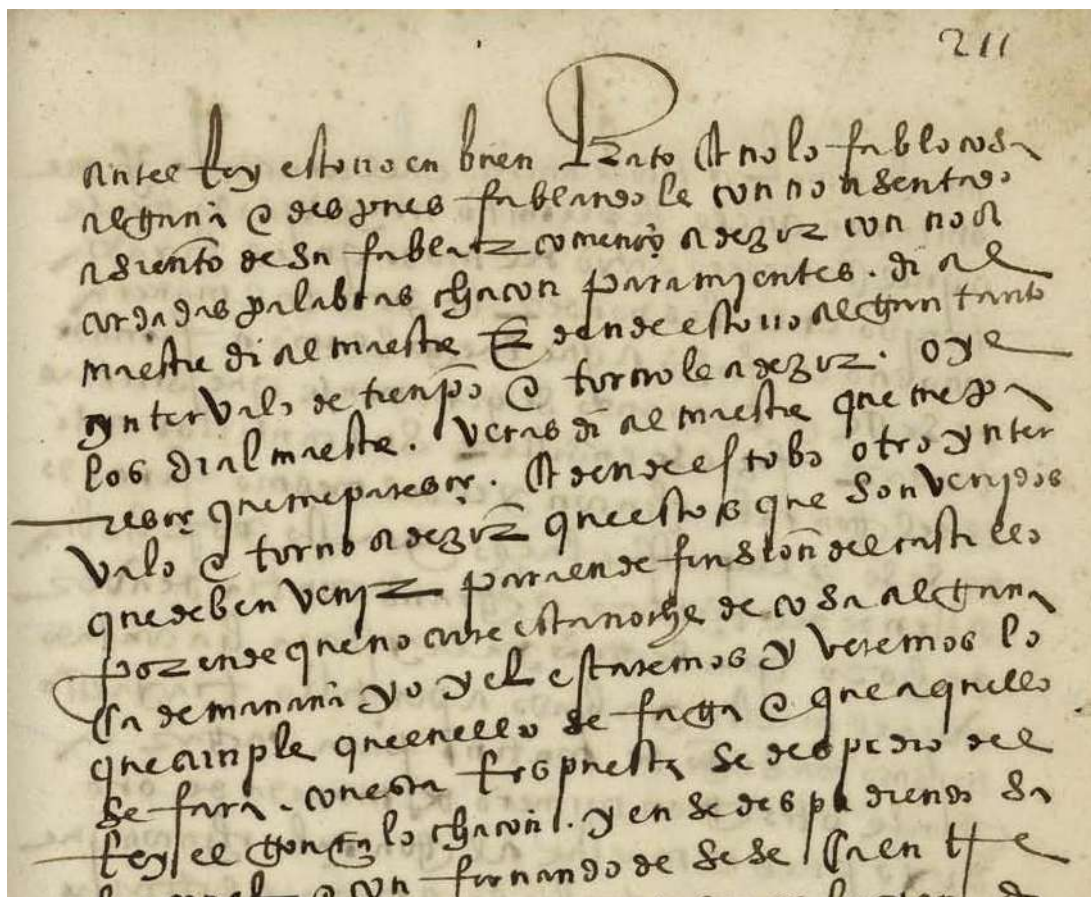 211
antel Rey estouo en buen Rato q̃ no lo fablo cosa
alguna e despues fablando le con no asentado
asiento de su fablar començo a dezir con no a
cordadas palabras chacon paramientes. di al
maestre di al maestre E dende estouo algun tanto
ynterualo de tienpo e tornole a dezir. oye
los di al maestre. veras di al maestre que me pa
resce que me paresce. E dende estobo otro ynter
valo e torno a dezir que estos que son venjdos
que deben venjr para ende fusion del castillo
por ende que no cure esta noche de cosa alguna
ca de manana yo y el estaremos y veremos lo
que cunple que en ello se faga e que aquello
se fara. con esta respuesta se despidio del
Rey el gonçalo chacon. y en se despidiendo sa
con fernando de sese